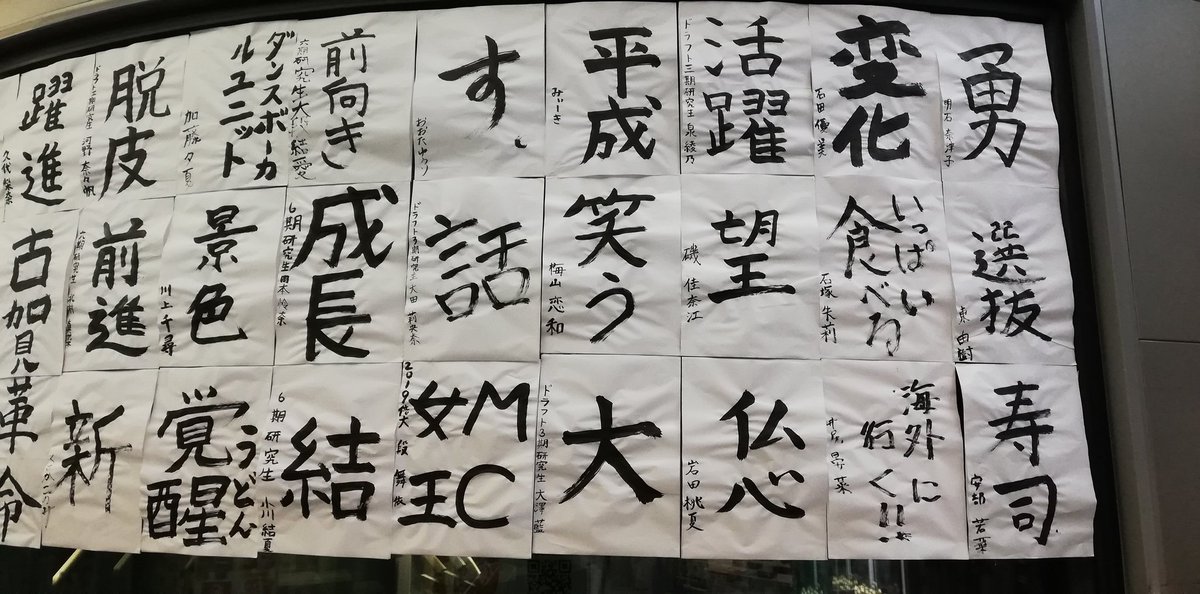 勇
明石奈津子
変化
石田優美
活躍
ドラフト三期研究生 泉綾乃
平成
みぃーき
す、
おおたゆうり
前向き
六期研究生 大 結愛
ダンスボーカ
ルユニット
加藤夕夏
脱皮
研究生 河野奈々帆
躍進
久代梨奈
選抜
東由樹
いっぱい
食べる
石塚朱莉
望
磯佳奈江
笑う
梅山恋和
話
ドラフト3期研究生 太田莉央奈
成長
6期研究生 本怜奈
景色
川上千尋
前進
六期研究生
古加見
寿司
安部若菜
海外に
行く!!
井尻晏菜
仏心
岩田桃夏
大
ドラフト3期研究生 大澤藍
MC
女王
2019 大段舞依
結
6期研究生 小川結夏
うどん
覚醒
新
革命